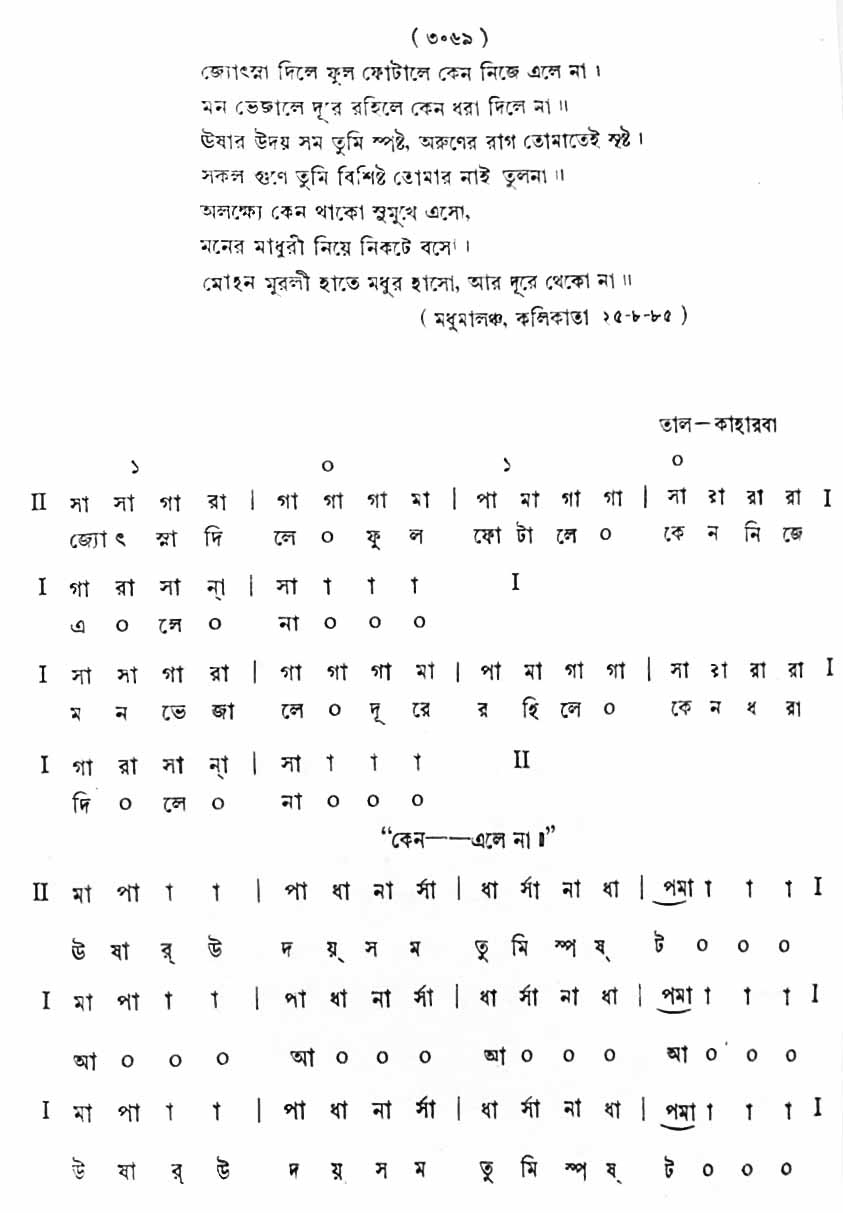 ( ৩০৬৯ )
জ্যোৎস্না দিলে ফুল ফোটালে কেন নিজে এলে না ।
মন ভেজালে দূরে রহিলে কেন ধরা দিলে না ॥
ঊষার উদয় সম তুমি স্পষ্ট, অরুণের রাগ তোমাতেই সৃষ্ট ।
সকল গুণে তুমি বিশিষ্ট তোমার নাই তুলনা ॥
অলক্ষ্যে কেন থাকো সুমুখে এসো,
মনের মাধুরী নিয়ে নিকটে বসো ।
মোহন মুরলী হাতে মধুর হাসো, আর দূরে থেকো না ॥
( মধুমালঞ্চ, কলিকাতা ২৫-৮-৮৫ )
তাল – কাহারবা
১ ০ ১ ০
II সা সা গা রা | গা গা গা মা | পা মা গা গা | সা রা রা রা I
জ্যো ৎ স্না দি লে ০ ফু ল ফো টা লে ০ কে ন নি জে
I গা রা সা ন্া | সা া া া I
এ ০ লে ০ না ০ ০ ০
I সা সা গা রা | গা গা গা মা | পা মা গা গা | সা রা রা রা I
ম ন ভে জা লে ০ দূ রে র হি লে ০ কে ন ধ রা
I গা রা সা ন্া | সা া া া II
দি ০ লে ০ না ০ ০ ০
“কেন——এলে না ॥”
II মা পা া া | পা ধা না র্সা | ধা র্সা না ধা | পমা া া া I
ঊ ষা র্ উ দ য়্ স ম তু মি স্প ষ্ ট ০ ০ ০
I মা পা া া | পা ধা না র্সা | ধা র্সা না ধা | পমা া া া I
আ ০ ০ ০ আ ০ ০ ০ আ ০ ০ ০ আ ০ ০ ০
I মা পা া া | পা ধা না র্সা | ধা র্সা না ধা | পমা া া া I
ঊ ষা র্ উ দ য়্ স ম তু মি স্প ষ্ ট ০ ০ ০